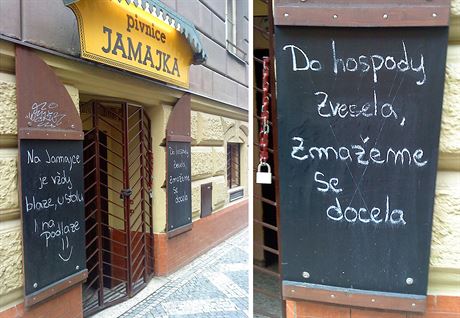 pivnice
JAMAJKA
Na Jamajce
je vždy
blaze, u stolu
i na
podlaze
Do hospody
zvesela,
zmažeme
se
docela
Do hospody
Zvesela,
Zmažeme
Se
docela